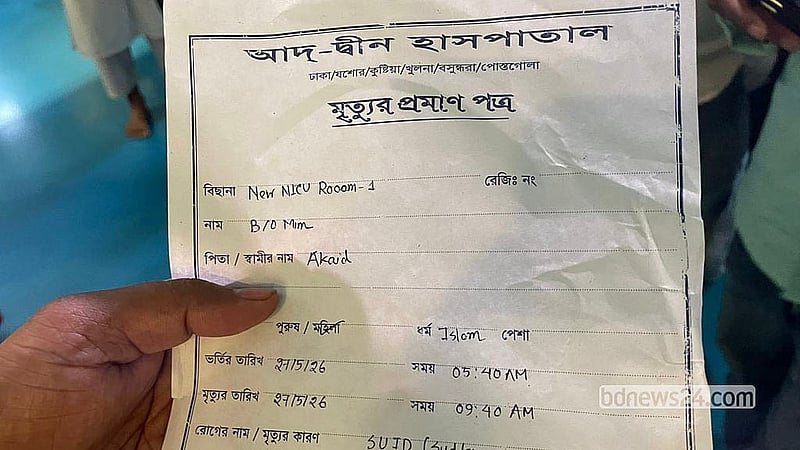 আদ-দ্বীন হাসপাতাল
ঢাকা/যশোর/কুষ্টিয়া/খুলনা/বসুন্ধরা/পোস্তগোলা
মৃত্যুর প্রমাণ পত্র
বিছানা New NICU Rooom-1 রেজিঃ নং
নাম B/O Mim
পিতা / স্বামীর নাম Akaid
পুরুষ / মহিলা ধর্ম Islam পেশা
ভর্তির তারিখ 27/5/26 সময় 05:40 AM
মৃত্যুর তারিখ 27/5/26 সময় 09:40 AM
রোগের নাম / মৃত্যুর কারণ SUID
bdnews24.com